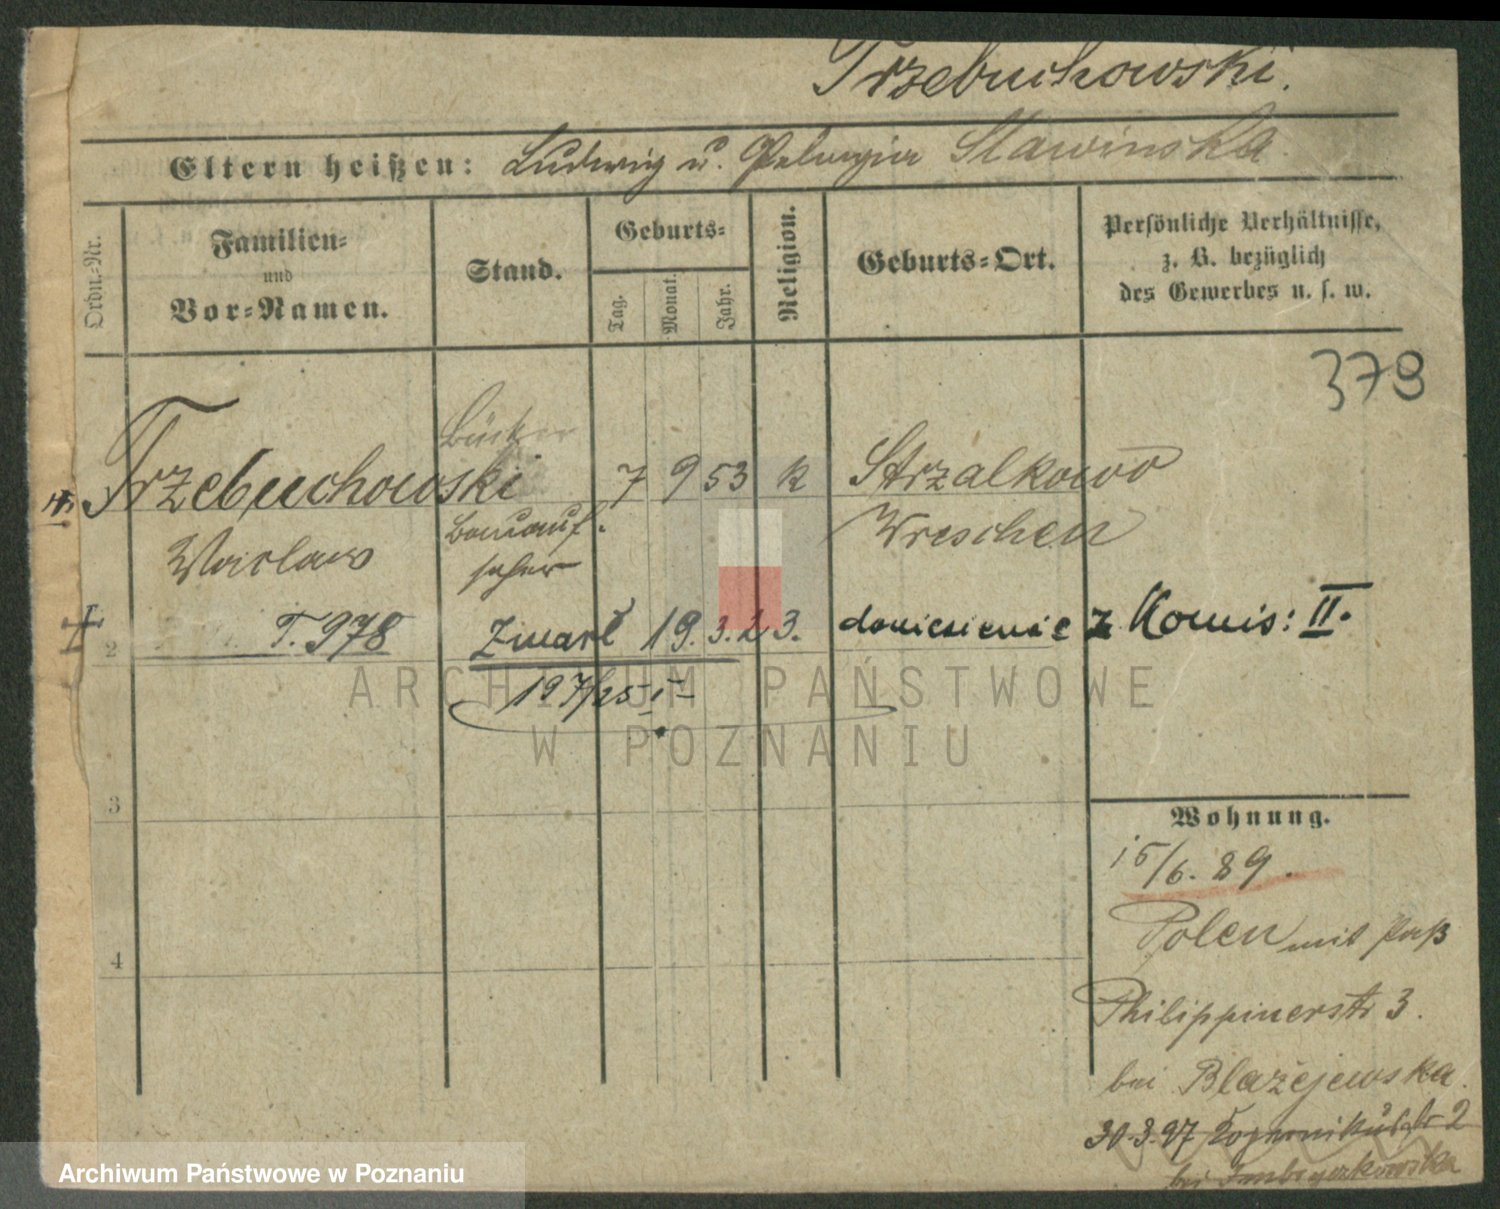 Trzebuchowski.
Eltern heißen: Ludwig u. Pelagia Slawinska
Ordn.-Nr.
Familien-
und
Vor-Namen.
Stand.
Geburts-
Tag.
Monat.
Jahr.
Religion.
Geburts-Ort.
Persönliche Verhältnisse,
z. B. bezüglich
des Gewerbes u. s. w.
378
Bäcker
Trzebuchowski 7 9 53 k Strzalkowo
Bauauf- Wreschen
Waclaw seher
T. 978 Zmarł 19.3.23. doniesienie z Komis: II.
2
197/25 I
ARCHIWUM PAŃSTWOWE
W POZNANIU
3
Wohnung.
15/6. 89.
4
Polen mit Paß
Philippinerstr 3.
bei Blażejewska.
30.3.97 Kopernikusstr 2
bei
Archiwum Państwowe w Poznaniu